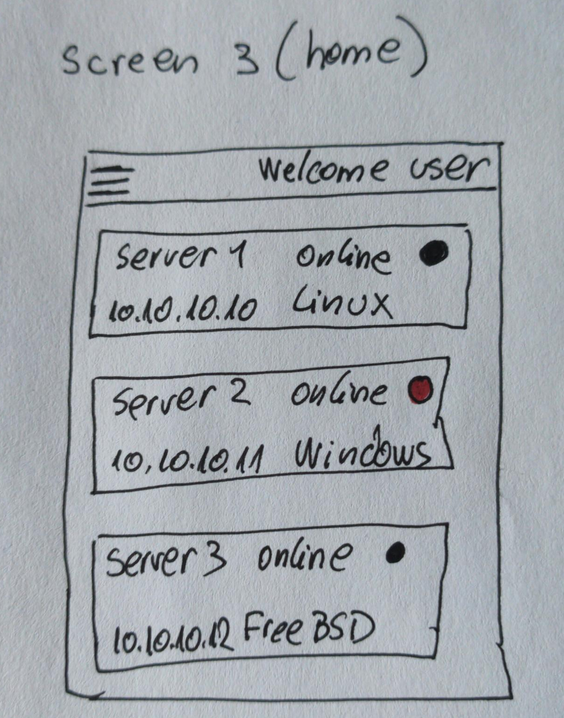 screen 3 (home)
Welcome user
Server 1 online
10.10.10.10 Linux
Server 2 online
10.10.10.11 Windows
Server 3 online
10.10.10.12 Free BSD